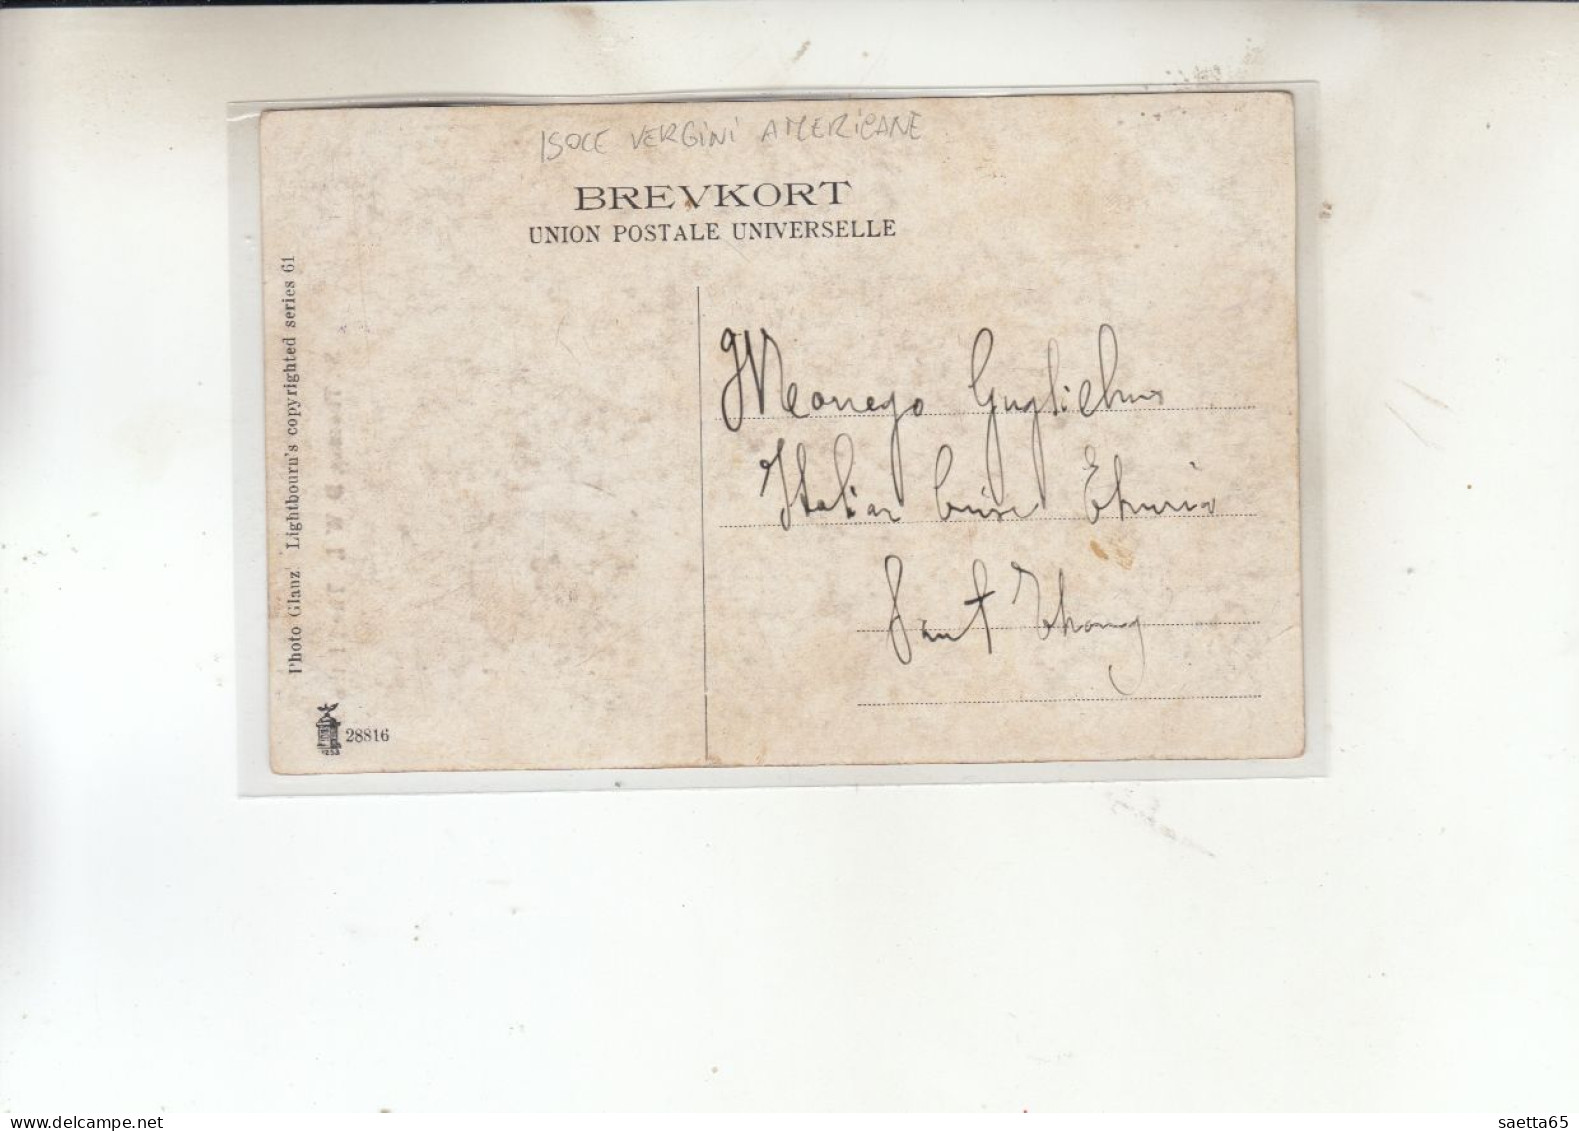 ISOLE VERGINI AMERICANE
BREVKORT
UNION POSTALE UNIVERSELLE
Photo Glanz Lightbourn's copyrighted series 61
Guglielmo
Italian Cruiser Etruria
Saint Thomas
28816
www.delcampe.net
saetta65